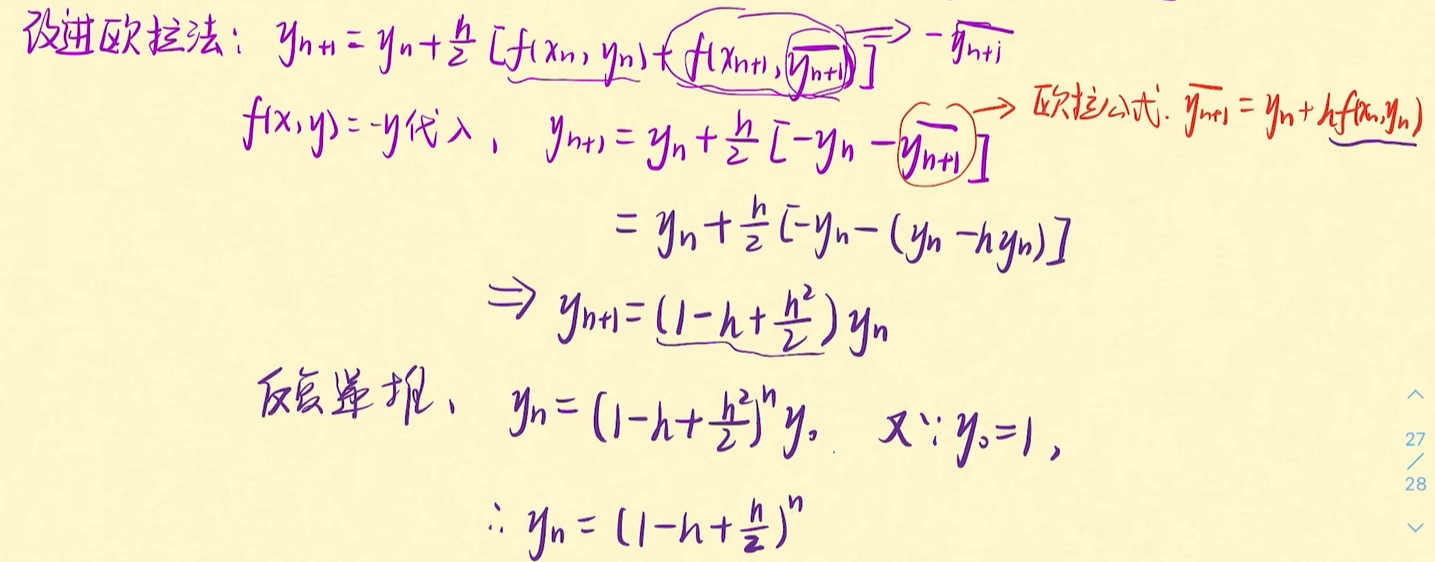 改进欧拉法: yₙ₊₁ = yₙ + h/2 [f(xₙ, yₙ) + f(xₙ₊₁, \overline{yₙ₊₁})] → -\overline{yₙ₊₁}
f(x,y) = -y代入, yₙ₊₁ = yₙ + h/2 [-yₙ - \overline{yₙ₊₁}] → 欧拉公式. \overline{yₙ₊₁} = yₙ + hf(xₙ,yₙ)
= yₙ + h/2 [-yₙ - (yₙ - hyₙ)]
⇒ yₙ₊₁ = (1 - h + h²/2) yₙ
反复递推, yₙ = (1 - h + h²/2)ⁿ y₀ 又∵ y₀ = 1,
∴ yₙ = (1 - h + h/2)ⁿ
27
/
28